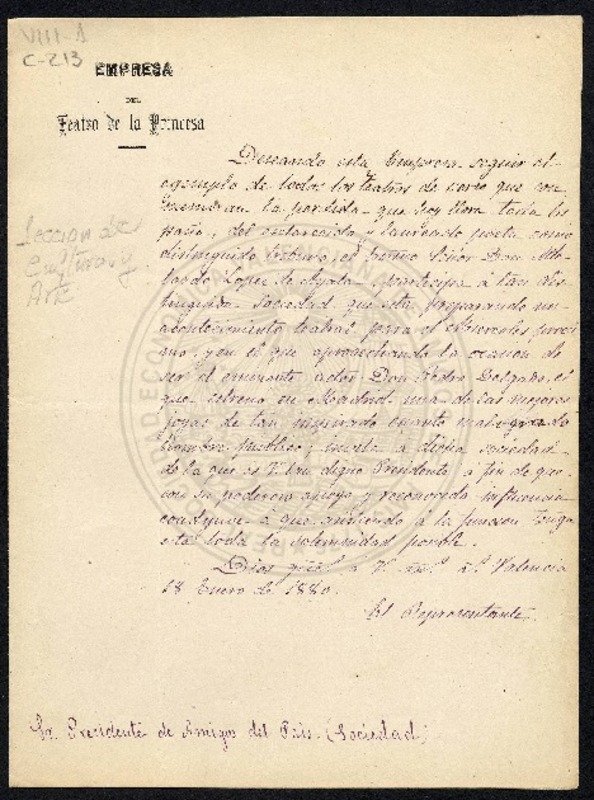 VIII-1
C-213
EMPRESA
DEL
Teatro de la Princesa
Sección de
Cultura y
Arte
Deseando esta Empresa seguir el
ejemplo de todos los teatros de verso que con
la perdida que hoy llora toda Es
paña, del esclarecido y laureado poeta como
distinguido, el Señor Don
Lopez de Ayala, participa á tan dis
tinguida Sociedad que está preparando un
acontecimiento teatral para el Miercoles proxi
mo, y en el que aprovechando la ocasion de
ser el eminente actor Don Pedro Delgado, el
que estrenó en Madrid una de las mejores
joyas de tan inspirado cuanto malogrado
hombre publico; invita á dicha sociedad
de la que es V. tan digno Presidente á fin de que
con su poderoso apoyo y reconocida influencia
coadyuve á que asistiendo á la funcion tenga
esta toda la solemnidad posible.
Dios á V. Valencia
18 Enero de 1880.
El Representante
Sr. Presidente de Amigos del Pais. (Sociedad)